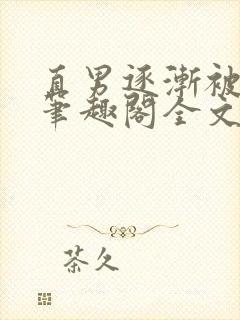 直男逐渐被
笔趣阁全文
茶久